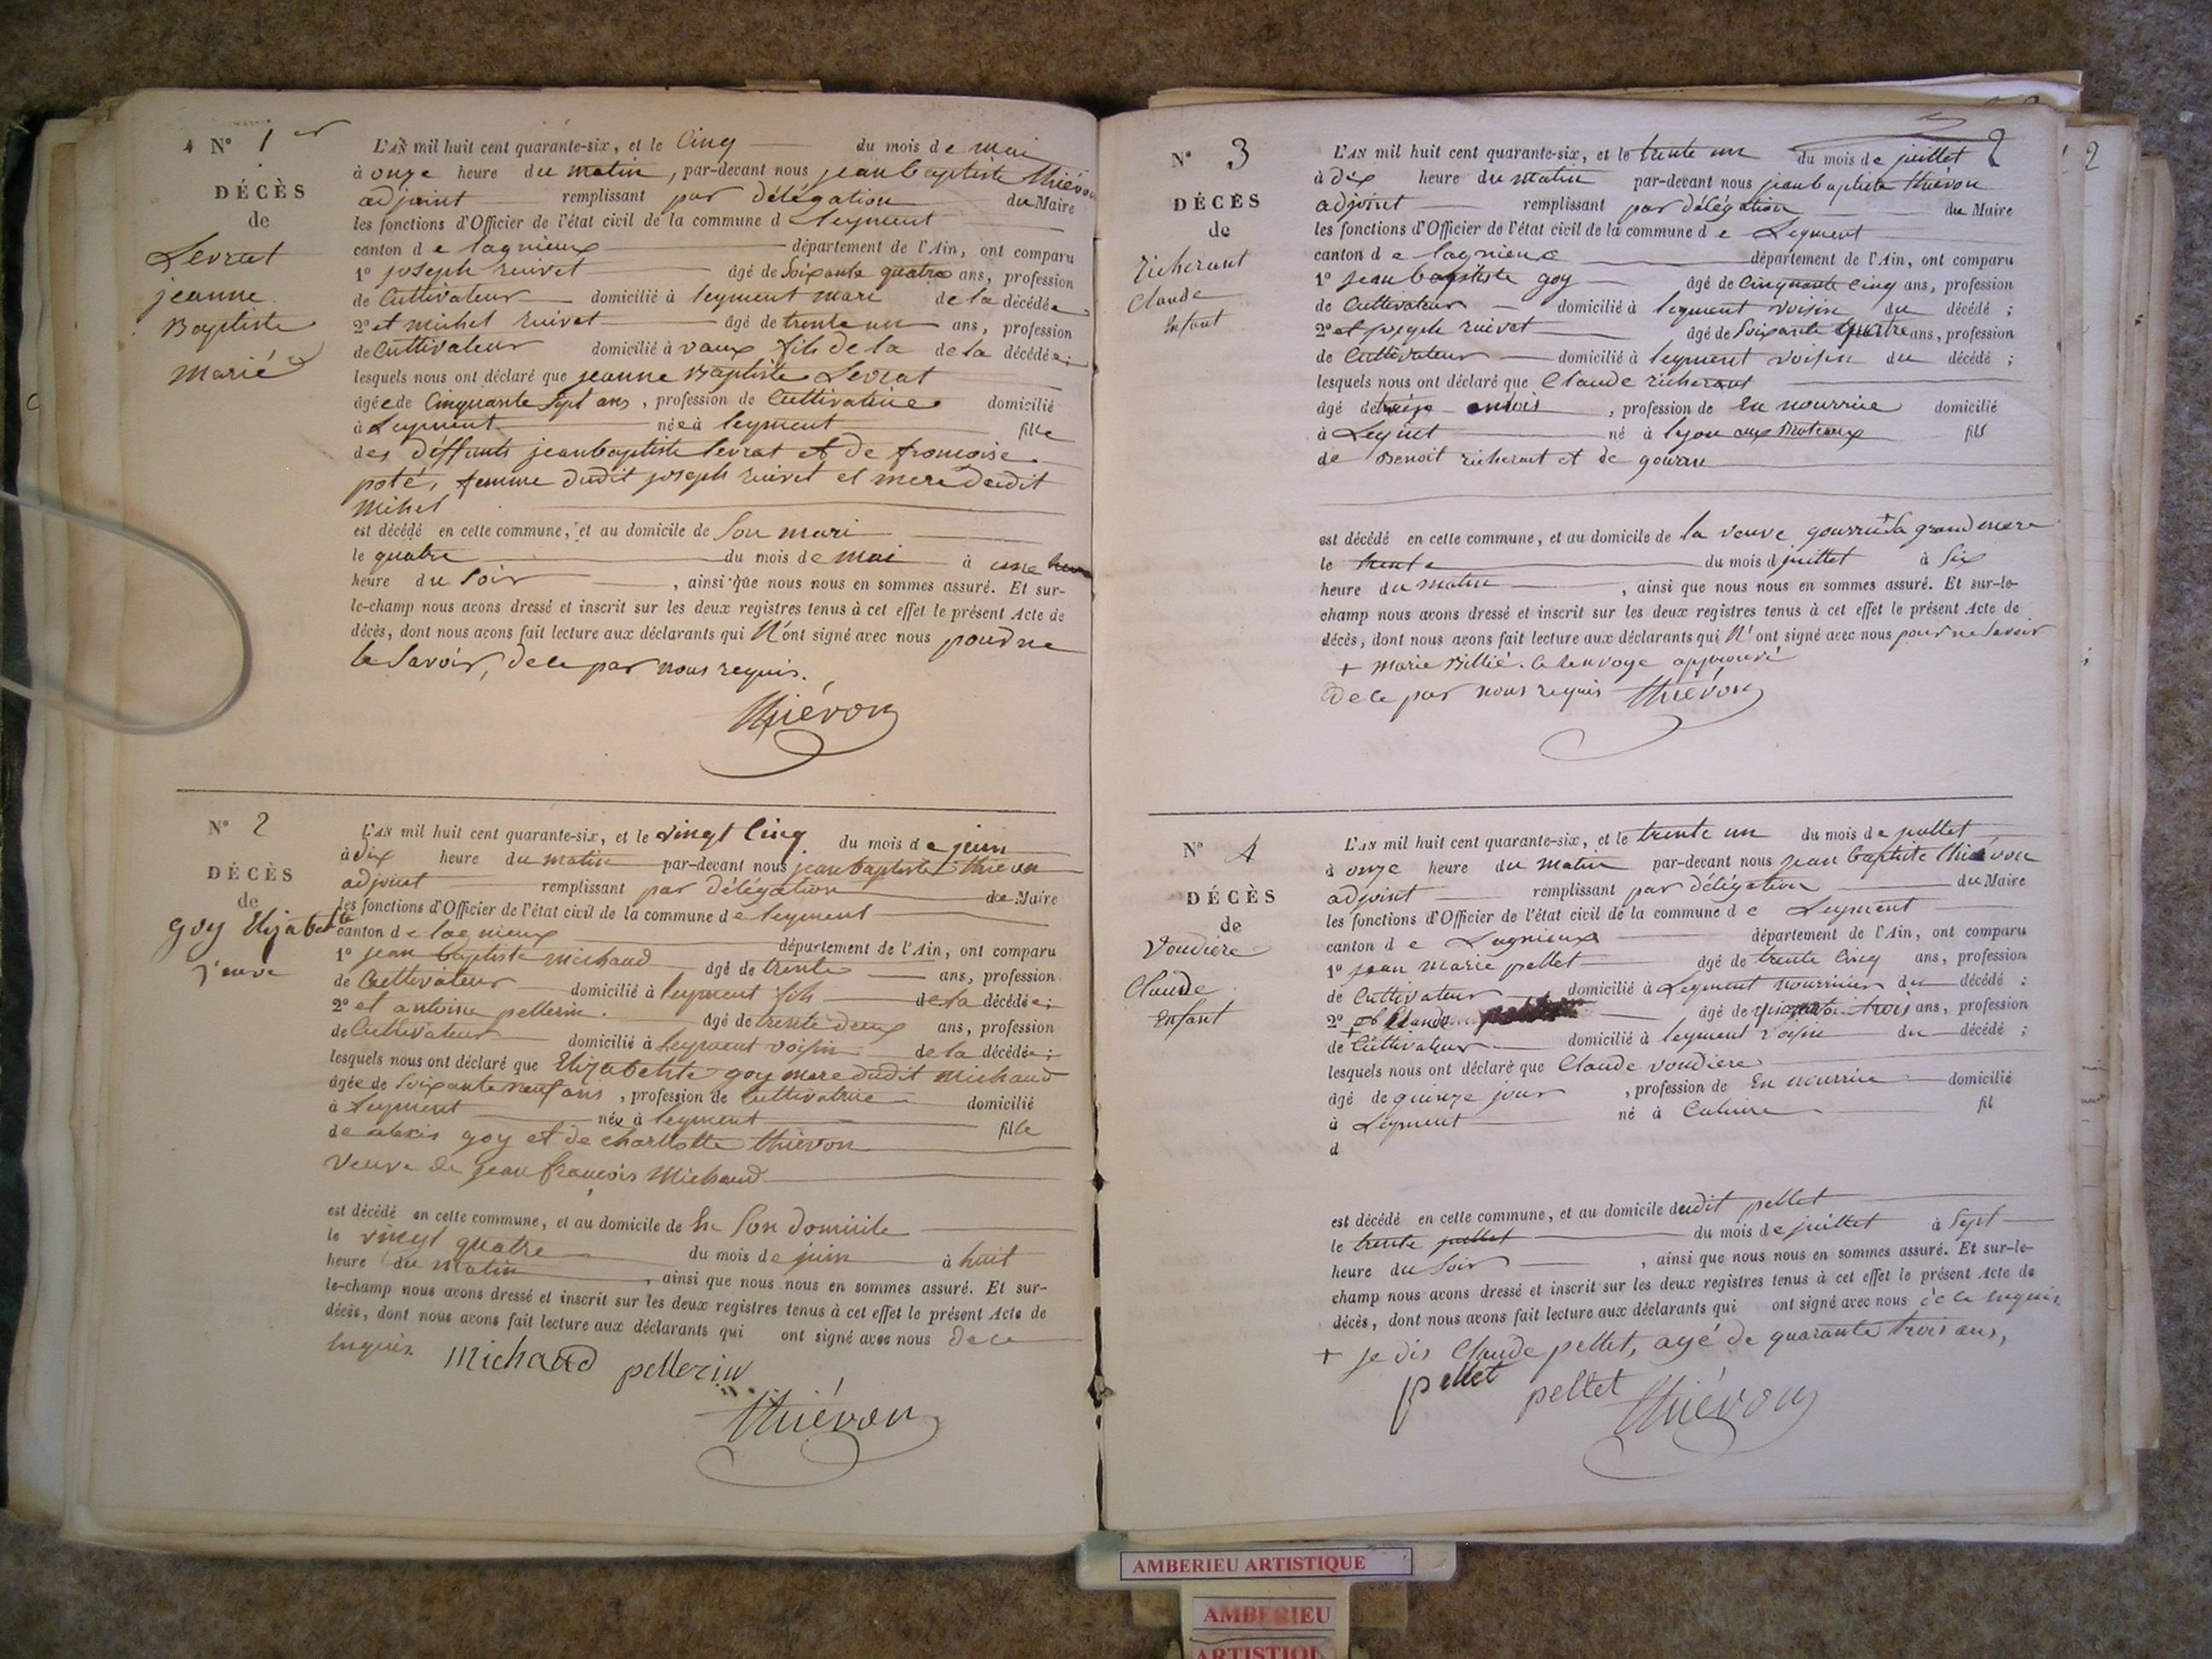 N° 1er
DÉCÈS
de
Levrat
jeanne
Baptiste
marié
L'AN mil huit cent quarante-six, et le Cinq du mois de mai
à onze heure du matin, par-devant nous jean baptiste thiévon
adjoint remplissant par délégation du Maire
les fonctions d'Officier de l'état civil de la commune d leyment
canton de lagnieux département de l'Ain, ont comparu
1° joseph ruivet âgé de Soixante quatre ans, profession
de Cultivateur domicilié à leyment mari de la décédée
2° et michel ruivet âgé de trente un ans, profession
de Cultivateur domicilié à vaux fils de la de la décédée;
lesquels nous ont déclaré que jeanne Baptiste Levrat
âgée de Cinquante Sept ans, profession de Cultivatrice domicilié
à Leyment née à leyment fille
des déffunts jean baptiste levrat et de francoise
poté, femme dudit joseph ruivet et mere dudit
Mihel
est décédé en cette commune, et au domicile de Son mari
le quatre du mois de mai à une heure
heure du Soir, ainsi que nous nous en sommes assuré. Et sur-
le-champ nous avons dressé et inscrit sur les deux registres tenus à cet effet le présent Acte de
décès, dont nous avons fait lecture aux déclarants qui N'ont signé avec nous pour ne
le Savoir, de ce par nous requis.
thiévon
N° 2
DÉCÈS
de
goy Elizabethte
veuve
L'AN mil huit cent quarante-six, et le vingt Cinq du mois de juin
à dix heure du matin par-devant nous jean baptiste thiévon
adjoint remplissant par délégation du Maire
les fonctions d'Officier de l'état civil de la commune de leyment
canton de lagnieux département de l'Ain, ont comparu
1° jean baptiste michaud âgé de trente ans, profession
de Cultivateur domicilié à leyment fils de la décédée;
2° et antoine pellerin. âgé de trente deux ans, profession
de Cultivateur domicilié à leyment voisin de la décédée;
lesquels nous ont déclaré que Elizabethte goy mere dudit michaud
âgée de Soixante neuf ans, profession de Cultivatrice domicilié
à Leyment née à leyment fille
de alexis goy et de charllotte thiévon
veuve de jean francois Michaud
est décédé en cette commune, et au domicile de En Son domicile
le vingt quatre du mois de juin à huit
heure du matin, ainsi que nous nous en sommes assuré. Et sur-
le-champ nous avons dressé et inscrit sur les deux registres tenus à cet effet le présent Acte de
décès, dont nous avons fait lecture aux déclarants qui ont signé avec nous de ce
requis. michaud pellerin
thiévon
2
N° 3
DÉCÈS
de
Richerant
Claude
Enfant
L'AN mil huit cent quarante-six, et le trente un du mois de juillet
à dix heure du matin par-devant nous jean baptiste thiévon
adjoint remplissant par délégation du Maire
les fonctions d'Officier de l'état civil de la commune de Leyment
canton de lagnieux département de l'Ain, ont comparu
1° jean baptiste goy âgé de Cinquante Cinq ans, profession
de Cultivateur domicilié à leyment voisin du décédé;
2° et joseph ruivet âgé de Soixante quatre ans, profession
de Cultivateur domicilié à leyment voisin du décédé;
lesquels nous ont déclaré que Claude richerant
âgé de treize mois, profession de En nourrice domicilié
à né à lyon aux Broteaux fils
de Benoit richerant et de gourru
est décédé en cette commune, et au domicile de la veuve gourru + Sa grand mere
le trente du mois d juillet à Six
heure du matin, ainsi que nous nous en sommes assuré. Et sur-le-
champ nous avons dressé et inscrit sur les deux registres tenus à cet effet le présent Acte de
décès, dont nous avons fait lecture aux déclarants qui N'ont signé avec nous pour ne Savoir
+ marie Billié. le renvoye approuvé
De ce par nous requis thiévon
N° 4
DÉCÈS
de
Voudiere
Claude
Enfant
L'AN mil huit cent quarante-six, et le trente un du mois de juillet
à onze heure du matin par-devant nous jean baptiste thiévon
adjoint remplissant par délégation du Maire
les fonctions d'Officier de l'état civil de la commune de Leyment
canton de Lagnieux département de l'Ain, ont comparu
1° jean marie pellet âgé de trente Cinq ans, profession
de Cultivateur domicilié à Leyment nourricier du décédé;
2° + et Claude âgé de trois ans, profession
de Cultivateur domicilié à leyment voisin du décédé;
lesquels nous ont déclaré que Claude voudiere
âgé de quinze jour, profession de En nourrice domicilié
à Leyment né à Caluire fil
d
est décédé en cette commune, et au domicile dudit pellet
le trente juillet du mois de juillet à Sept
heure du Soir, ainsi que nous nous en sommes assuré. Et sur-le-
champ nous avons dressé et inscrit sur les deux registres tenus à cet effet le présent Acte de
décès, dont nous avons fait lecture aux déclarants qui ont signé avec nous de ce requis
+ je dis Claude pellet, agé de quarante trois ans,
pellet pellet thiévon
2
AMBERIEU ARTISTIQUE
AMBERIEU
ARTISTIQU